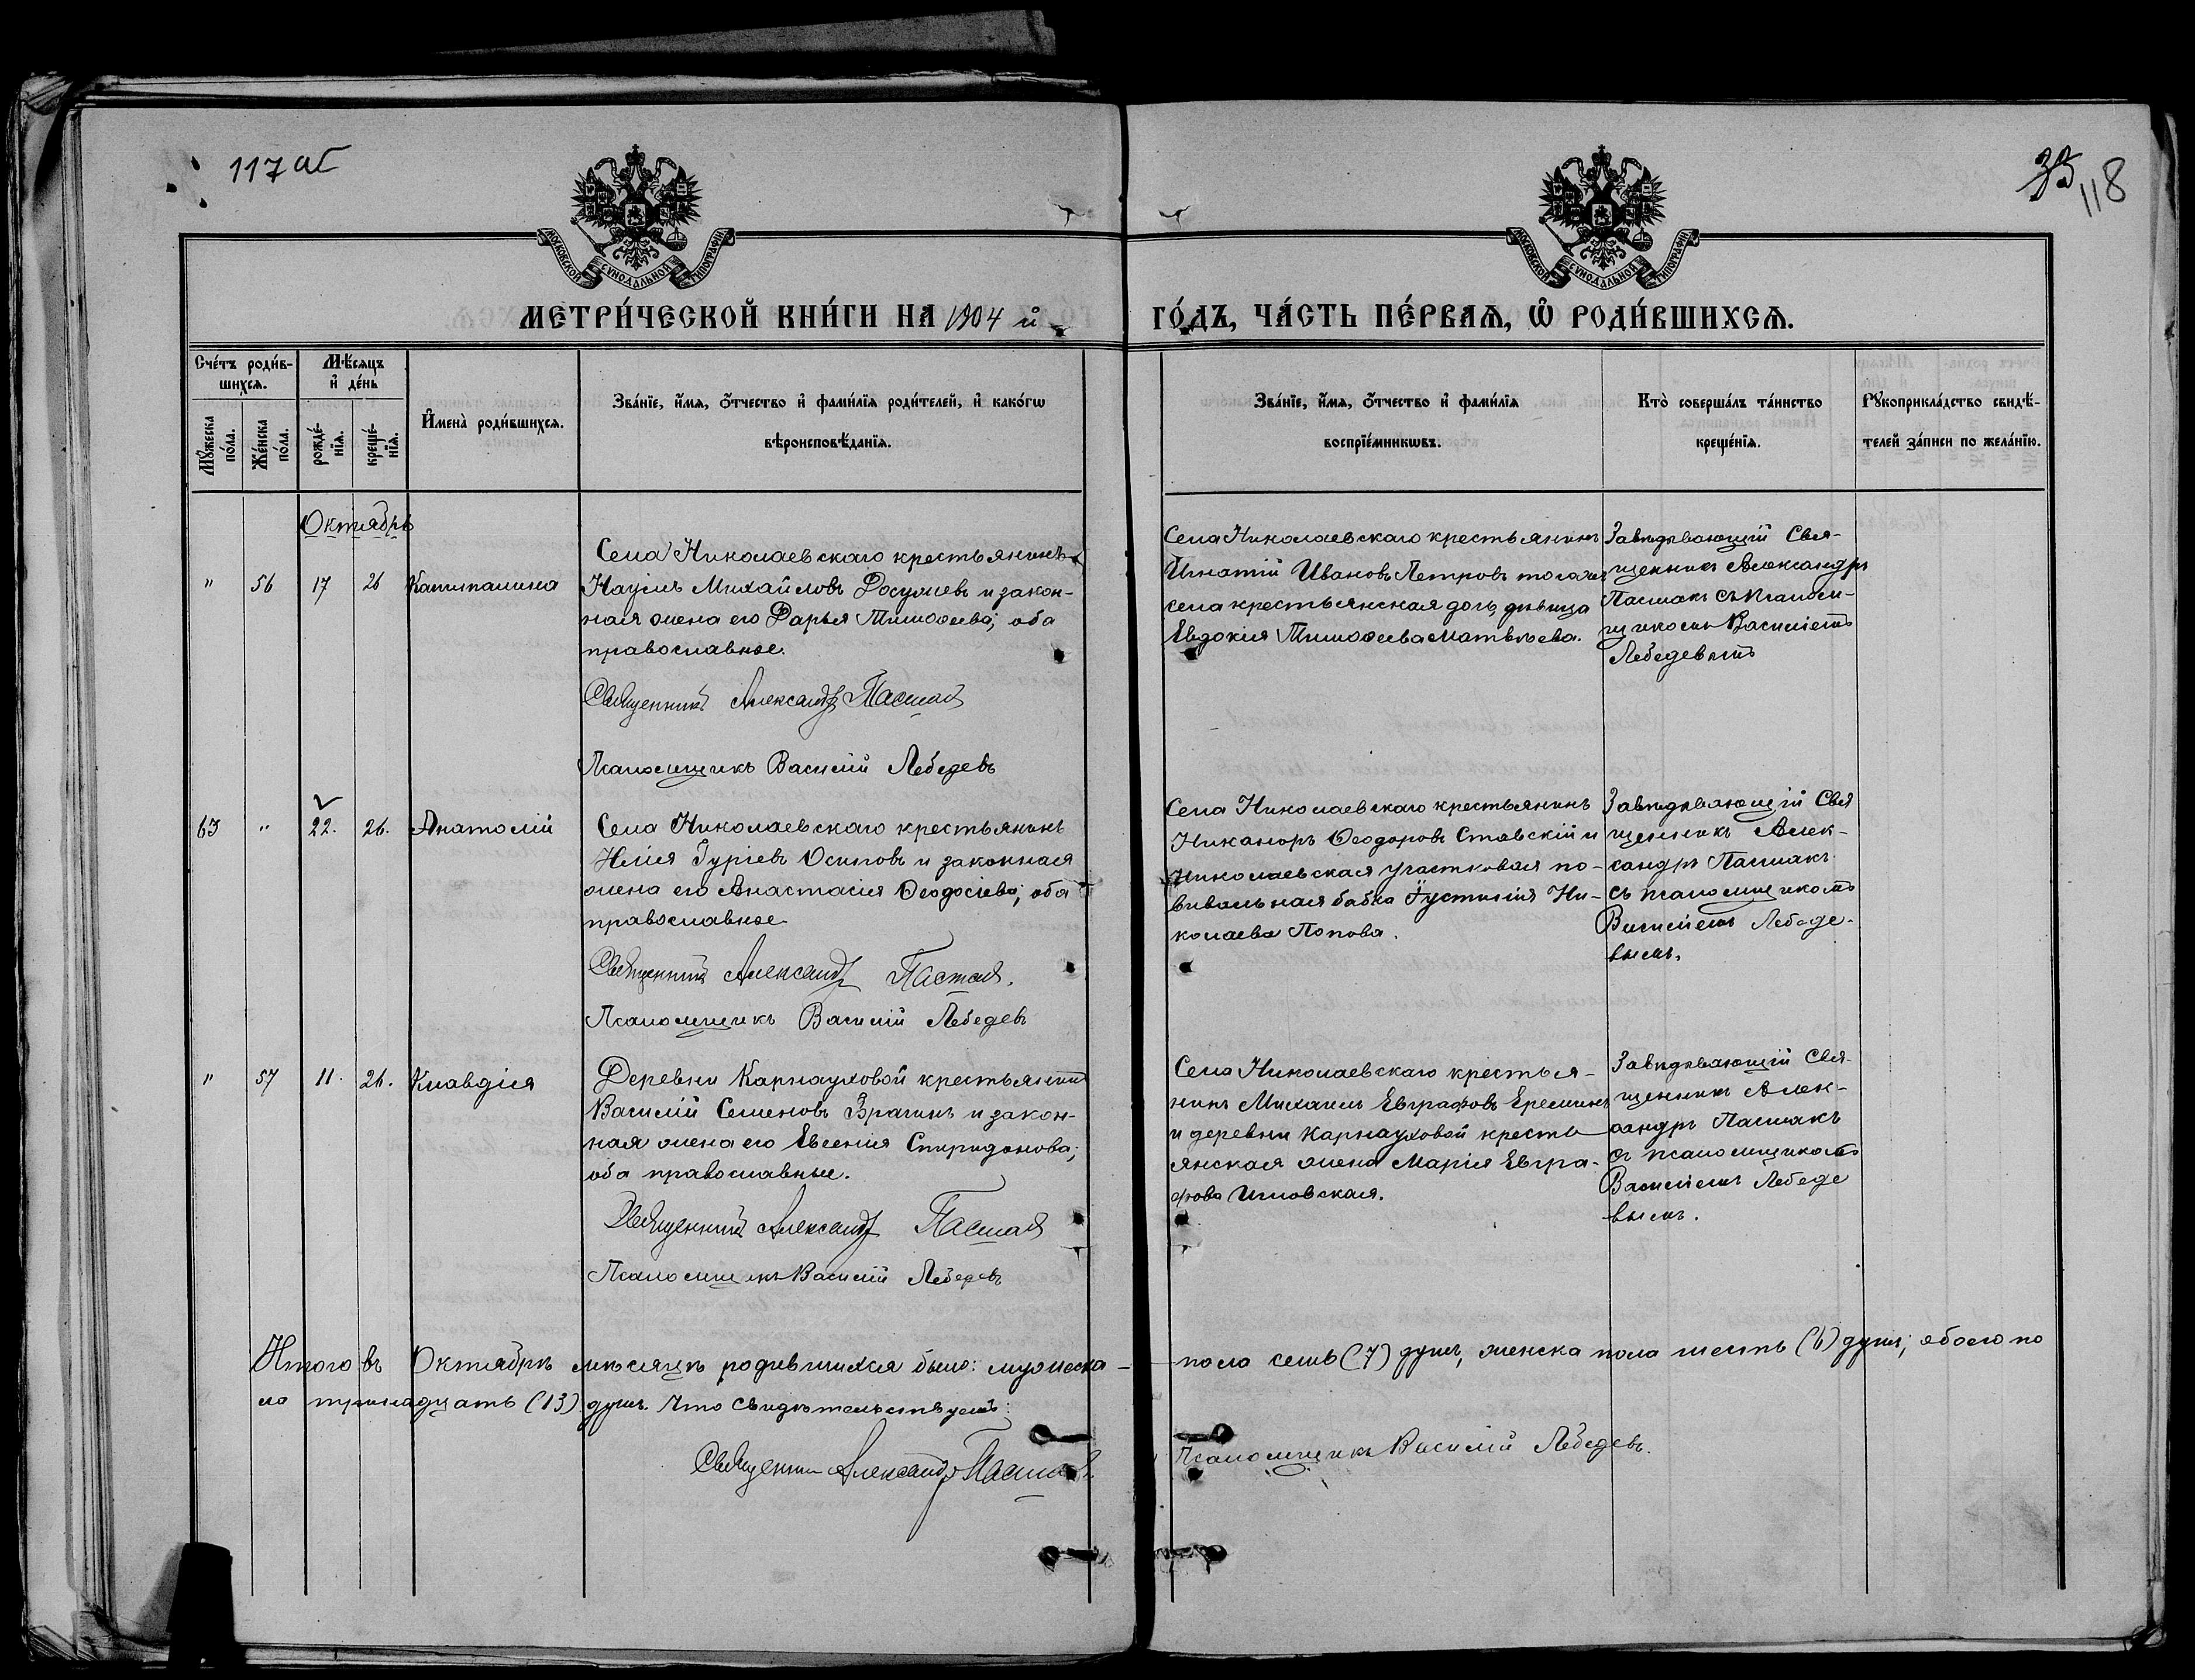 117 об
35
118
МОСКОВСКОЙ СѴНОДАЛЬНОЙ ТИПОГРАФІИ
МОСКОВСКОЙ СѴНОДАЛЬНОЙ ТИПОГРАФІИ
МЕТРИ́ЧЕСКОЙ КНИ́ГИ НА 1904 й
ГО́ДЪ, ЧА́СТЬ ПЕ́РВАѦ, Ѡ҆ РОДИ́ВШИХСѦ.
Сче́тъ роди́в-
шихсѧ.
Мꙋ́жеска
по́ла.
Же́нска
по́ла.
Мѣ́сѧцъ
и҆ де́нь
рожде́-
нїѧ.
креще́-
нїѧ.
И҆мена̀ роди́вшихсѧ.
Зва́нїе, и҆́мѧ, ѻ҆́тчество и҆ фами́лїѧ роди́телей, и҆ како́гѡ
вѣроисповѣ́данїѧ.
Зва́нїе, и҆́мѧ, ѻ҆́тчество и҆ фами́лїѧ
воспрїе́мникѡвъ.
Кто̀ соверша́лъ та́инство
креще́нїѧ.
Рꙋкоприкла́дство свидѣ́-
телей за́писи по жела́нїю.
Октябрь
" 56 17 26 Капитолина
Села Николаевскаго крестьянинъ
Наумъ Михайловъ Досужевъ и закон-
ная жена его Дарья Тимоѳеева; оба
православные.
Священникъ Александръ Пасмакъ
Псаломщикъ Василій Лебедевъ
Села Николаевскаго крестьянинъ
Игнатій Ивановъ Петровъ тогоже
села крестьянская дочь, дѣвица
Евдокія Тимоѳеева Матвѣева.
Завѣдывающій Свя-
щенникъ Александръ
Пасмакъ съ псалом-
щикомъ Василіемъ
Лебедевымъ
63 " 22. 26. Анатолій
Села Николаевскаго крестьянинъ
Илія Гуріевъ Осиповъ и законная
жена его Анастасія Ѳеодосіева; оба
православные
Священникъ Александръ Пасмакъ.
Псаломщикъ Василій Лебедевъ
Села Николаевскаго крестьянинъ
Никаноръ Ѳеодоровъ Ставскій и
Николаевская участковая по-
вивальная бабка Іустинія Ни-
колаева Попова.
Завѣдывающій Свя
щенникъ Алек-
сандръ Пасмакъ
съ псаломщикомъ
Василіемъ Лебеде-
вымъ.
" 57 11. 26. Клавдія
Деревни Карнауховой крестьянинъ
Василій Семеновъ Брагинъ и закон-
ная жена его Евгенія Спиридонова;
оба православные.
Священникъ Александръ Пасмакъ
Псаломщикъ Василій Лебедевъ
Села Николаевскаго крестья-
нинъ Михаилъ Евграфовъ Ереминъ
и деревни Карнауховой кресть
янская жена Марія Евгра-
фова Иловская.
Завѣдывающій Свя-
щенникъ Алек-
сандръ Пасмакъ
съ псаломщикомъ
Василіемъ Лебеде
вымъ.
Итого въ Октябрѣ мѣсяцѣ родившихся было: мужеска-
пола семь (7) душъ, женска пола шесть (6) душъ; обоего по
ла тринадцать (13) душъ. Что свидѣтельствуемъ:
Священникъ Александръ Пасмакъ.
Псаломщикъ Василій Лебедевъ.